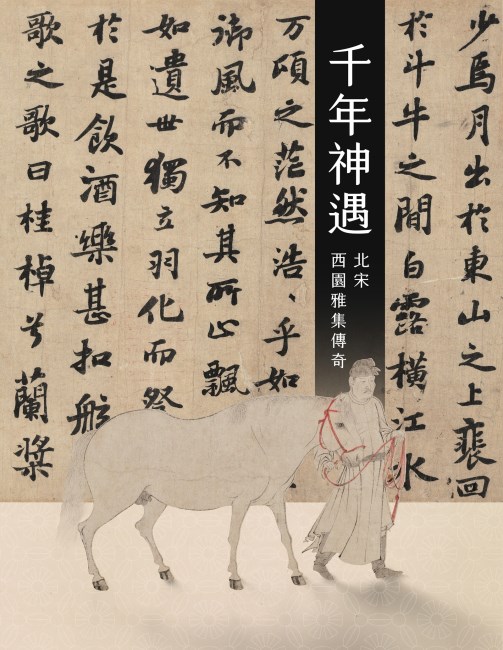 少焉月出於東山之上裴回
於斗牛之間白露橫江水
千年神遇
北宋
西園雅集傳奇
万頃之茫然浩、乎如
御風而不知其所止飄
如遺世獨立羽化而登
於是飲酒樂甚扣舷
歌之歌曰桂棹兮蘭槳